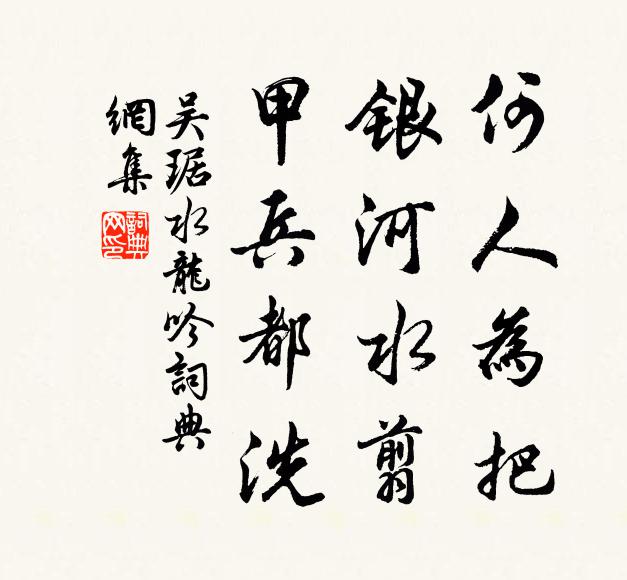 何人為把
銀河水剪
甲兵都洗
吴琚水龍吟詞典
網集
詞典網印